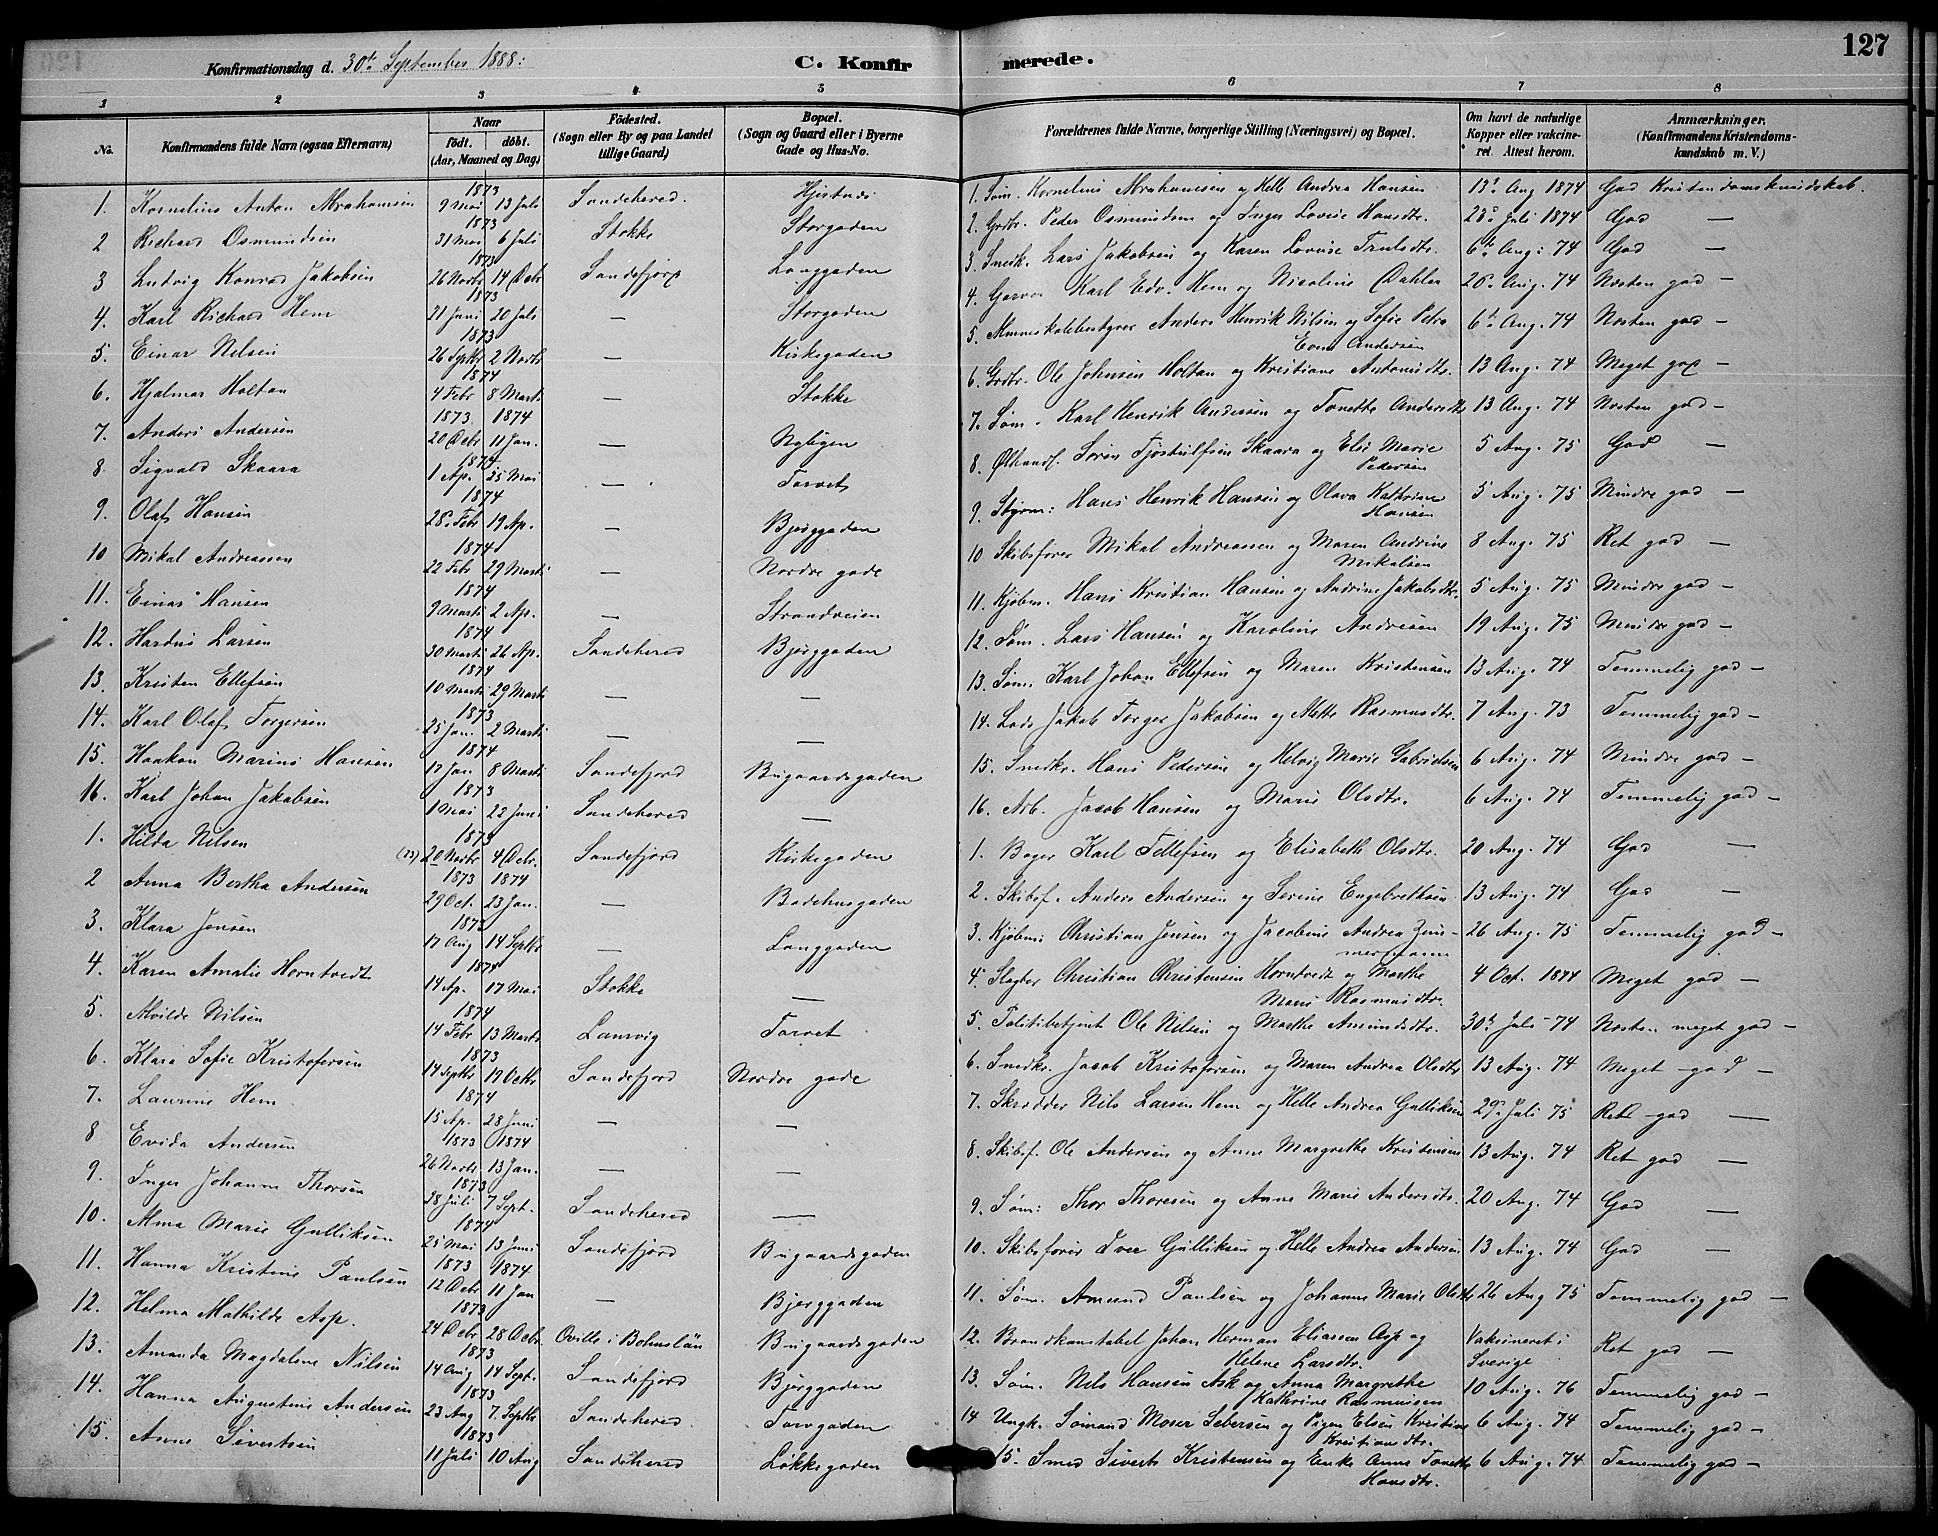 127
Konfirmationsdag d. 30te September 1888: C. Konfirmerede.
1 2 3 4 5 6 7 8
No. Konfirmandens fulde Navn (ogsaa Efternavn) Naar födt. döbt. (Aar, Maaned og Dag) Födested. (Sogn eller By og paa Landet tillige Gaard) Bopæl. (Sogn og Gaard eller i Byerne Gade og Hus-No. Forældrenes fulde Navne, borgerlige Stilling (Næringsvei) og Bopæl. Om havt de naturlige Kopper eller vakcineret. Attest herom. Anmærkninger. (Konfirmandens Kristendomskundskab m. V.)
1. Kornelius Anton Abrahamsen 1873 9 Mai 13 Juli Sandehered. Hjertnes 1. Søm. Kornelius Abrahamsen og Helle Andrea Hansen 13de Aug 1874 God Kristendomskundskab.
2 Richard Osmundsen 1873 31 Mai 6 Juli Stokke Storgaden 2. Grdbr. Peder Osmundsen og Inger Lovise Hansdtr. 23de Juli 1874 God —
3 Ludvig Konrad Jakobsen 1873 26 Novbr 14 Debr Sandefjord Langgaden 3. Snedk. Lars Jakobsen og Karen Lovise Trulsdtr. 6te Aug: 74 God —
4. Karl Richard Hem 1873 21 Juni 20 Juli — Storgaden 4. Garver Karl Edv. Hem og Nicoline Dahler 20de Aug. 74 Nesten god —
5. Einar Nilsen 1873 26 Septbr 2 Novbr — Kirkegaden 5. Almueskolebestyrer Anders Henrik Nilsen og Sofie Petra Andersen 6te Aug. 74 Nesten god —
6. Hjalmar Holtan 1874 4 Febr 8 Marts — Stokke 6. Grdbr. Ole Johnsen Holtan og Kristiane Antonisdtr. 13 Aug. 74 Meget god —
7. Anders Andersen 1873 1874 20 Debr 11 Jan. — Nybyen 7. Søm. Karl Henrik Andersen og Tonette Andersdtr 13 Aug. 74 Nesten god —
8 Sigvald Skaara 1874 1 Ap. 25 Mai — Torvet 8. Ølhandl. Søren Tjøstulfsen Skaara og Elise Marie Pedersen 5 Aug. 75 God —
9. Olaf Hansen 1874 28. Febr 19 Ap. — Bjerggaden 9. Styrm: Hans Henrik Hansen og Olava Kathrine Hansen 5 Aug. 75 Mindre god —
10 Mikal Andreassen 1874 22 Febr 29 Marts — Nordre gade 10 Skibsfører Mikal Andreassen og Maren Andrine Mikalsen 8 Aug. 75 Ret god —
11. Einar Hansen 1874 9 Marts 2 Ap. — Strandveien 11. Kjøbm. Hans Kristian Hansen og Andrine Jakobsdtr. 5 Aug. 75 Mindre god —
12. Hardus Larsen 1874 30 Marts 26 Ap. Sandehered Bjerggaden 12. Søm. Lars Hansen og Karoline Andresen 19 Aug. 75 Mindre god —
13. Kristen Ellefsen 1874 10 Marts 29 Marts — — 13. Søm. Karl Johan Ellefsen og Maren Kristensen 13 Aug. 74 Temmelig god —
14. Karl Olaf Torgersen 1873 25 Jan. 2 Marts — — 14. Lods Jakob Torger Jakobsen og Mette Rasmusdtr. 7 Aug. 73 Temmelig god —
15. Haakon Marius Hansen 1874 12 Jan 8 Marts Sandefjord Bugaardsgaden 15. Snedkr. Hans Pedersen og Helvig Marie Gabrielsen 6 Aug. 74 Mindre god —
16. Karl Johan Jakobsen 1873 1 Mai 22 Juni Sandehered — 16. Arb. Jacob Hansen og Marie Olsdtr. 6 Aug. 74 Temmelig god —
1. Hilda Nilsen (13) 1873 20 Novbr 4 Debr. Sandefjord Kirkegaden 1. Bager Karl Tellefsen og Elisabeth Olsdtr. 20 Aug. 74 God —
2 Anna Bertha Andersen 1873 1874 29 Oct. 23 Jan. — Badehusgaden 2. Skibsf. Anders Andersen og Serine Engebrethsen 13 Aug. 74 God —
3. Klara Jensen 1873 17 Aug 14 Septbr — Langgaden 3. Kjøbm: Christian Jensen og Jacobine Andrea Zimmermann 26 Aug. 75 Temmelig god —
4. Karen Amalie Horntvedt 1874 14 Ap. 17 Mai Stokke — 4. Slagter Christian Christensen Horntvedt og Marthe Marie Rasmusdtr. 4 Oct. 1874 Meget god —
5. Alvilde Nilsen 1874 14 Febr 13 Marts Laurvig Torvet 5. Politibetjent Ole Nilsen og Marthe Amundsdtr. 30te Juli 74 Nesten meget god —
6. Klara Sofie Kristofersen 1873 14 Septbr 19 Octbr Sandefjord Nordre gade 6. Snedkr. Jacob Kristofersen og Maren Andrea Olsdtr 13 Aug. 74 Meget god —
7. Laurine Hem 1874 15 Ap. 28 Juni — — 7. Skrædder Nils Larsen Hem og Helle Andrea Gulliksen 29de Juli 75 Ret god —
8 Evida Andersen 1873 1874 26 Novbr 13 Jan. — — 8. Skibsf. Ole Andersen og Anne Margrethe Kristensen 13 Aug. 74 Ret god —
9. Inger Johanne Thorsen 1873 28 Juli 7 Sept. Sandehered — 9. Søm: Thor Thoresen og Anne Marie Andersdtr. 20 Aug. 74 God —
10. Alma Marie Gulliksen 1874 25 Mai 13 Juni Sandefjord Bugaardsgaden 10. Skibsfører Iver Gulliksen og Helle Andrea Andersen 13 Aug. 74 God —
11. Hanna Kristine Paulsen 1873 1874 12 Debr 11 Jan — Bjerggaden 11. Søm. Amund Paulsen og Johanne Marie Olsdtr 26 Aug 75 Temmelig god —
12. Helma Mathilde Asp. 1873 24 Debr 28 Debr. Oville i Bohuslän Bugaardsgaden 12. Brandkonstabel Johan Herman Eliassen Asp og Helene Larsdtr. Vaksineret i Sverige Ret god —
13. Amanda Magdalene Nilsen 1873 14 Aug 14 Sept. Sandefjord Bjerggaden 13. Søm. Nils Hansen Ask og Anna Margrethe Kathrine Rasmussen 10 Aug. 76 Temmelig god —
14. Hanna Augustine Andersen 1873 23 Aug 7 Septbr Sandehered. Torvgaden 14 Ungk. Sømand Moser Sebersen og Pigen Elsen Kristine Kristiansdtr. 6 Aug. 74 Temmelig god —
15. Anne Sivertsen 1873 11 Juli 10 Aug Sandehered Løkkegaden 15. Smed Sivert Kristensen og Enke Anne Tonette Hansdtr. 6 Aug. 74 Temmelig god —